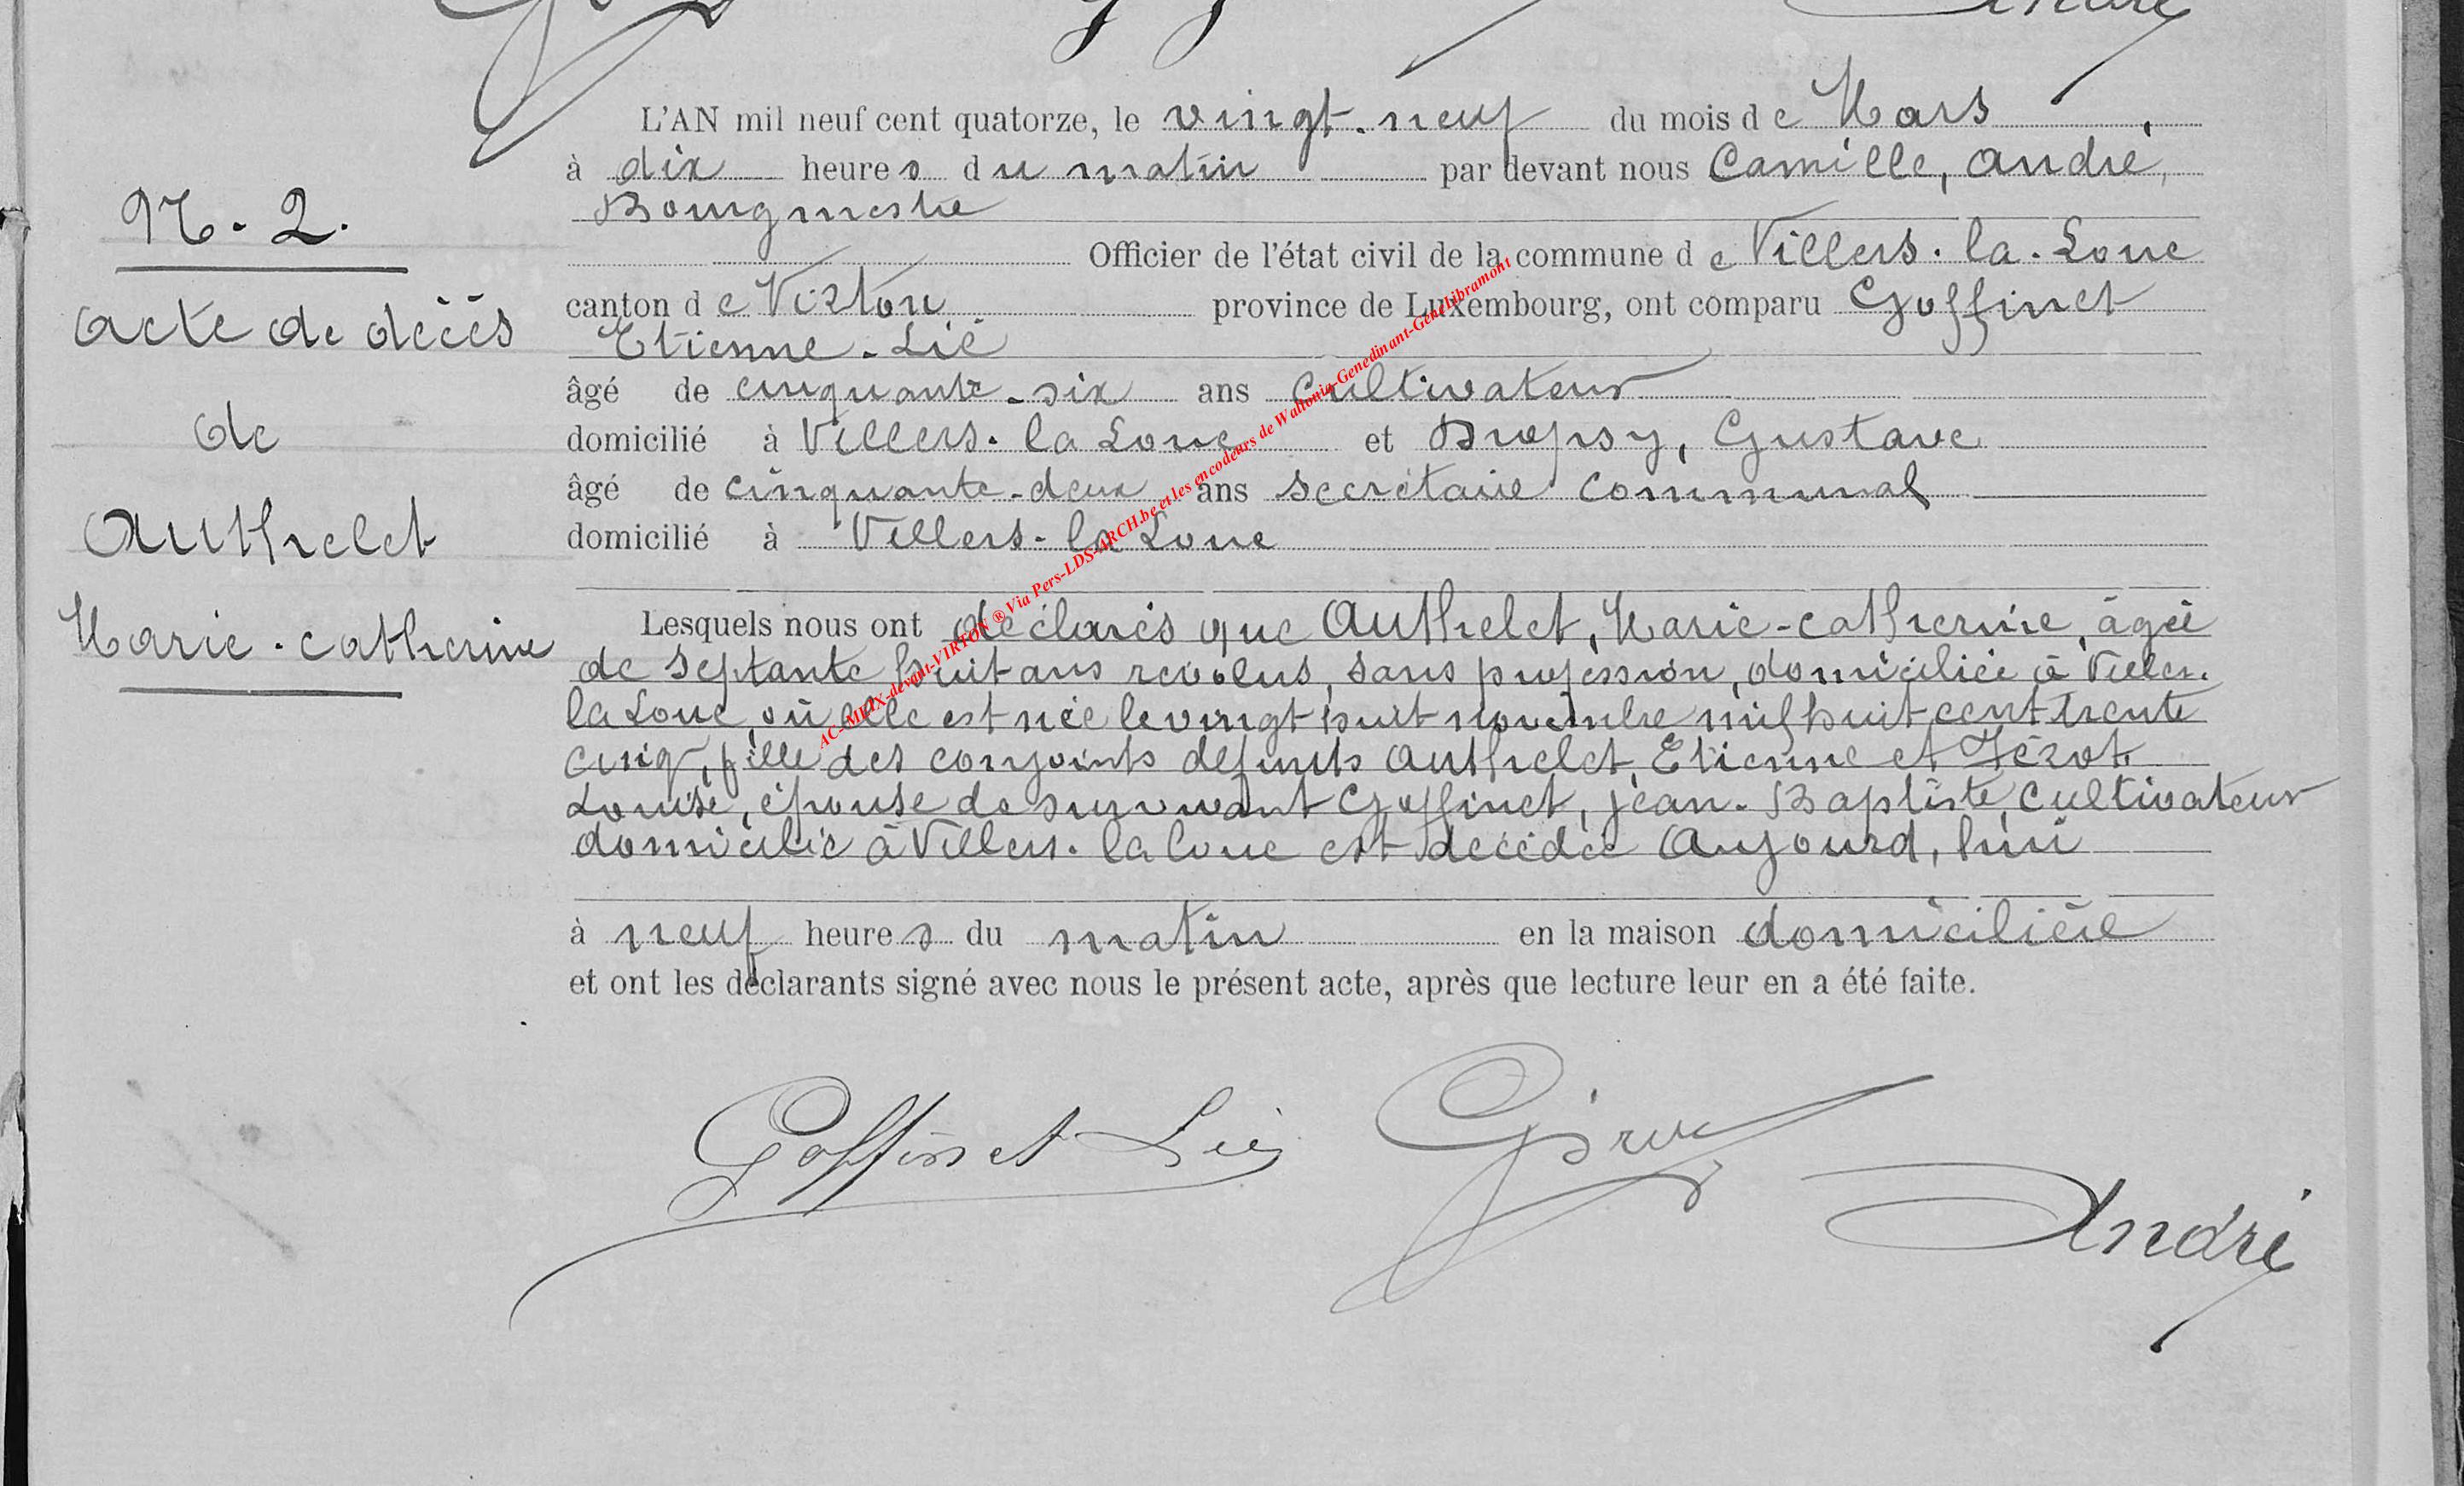 André
L'AN mil neuf cent quatorze, le vingt-neuf du mois de Mars
à dix heures du matin par devant nous Camille, André,
Bourgmestre
Officier de l'état civil de la commune de Villers-la-Loue
canton de Virton province de Luxembourg, ont comparu Goffinet
Etienne-Lié
âgé de cinquante-six ans cultivateur
domicilié à Villers-la Loue et Dropsy, Gustave
âgé de cinquante-deux ans secrétaire communal
domicilié à Villers-la Loue
Lesquels nous ont déclarés que Authelet, Marie-catherine, âgée
de septante huit ans revolus, sans profession, domiciliée à Villers-
la Loue, où elle est née le vingt huit novembre mil huit cent trente
cinq, fille des conjoints defunts Authelet, Etienne et
Louise, épouse de survivant Goffinet, jean-Baptiste, cultivateur
domicilié à Villers-la loue est décédée Aujourd, hui
à neuf heures du matin en la maison domicilière
et ont les déclarants signé avec nous le présent acte, après que lecture leur en a été faite.
N. 2.
acte de décès
de
Authelet
Marie-catherine
Goffinet Lié
André
AC-MEIX-devant-VIRTON ® Via Pers-LDS-ARCH.be et les encodeurs de Wallonia-Genedinant-GeneLibramont